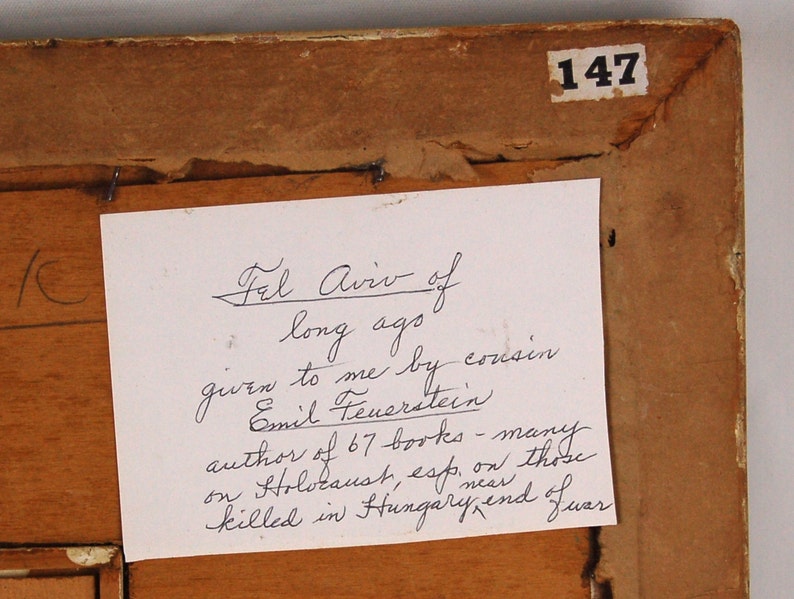 147
IC
Tel Aviv of
long ago
given to me by cousin
Emil Feuerstein
author of 67 books - many
on Holocaust, esp. on those
killed in Hungary, near end of war